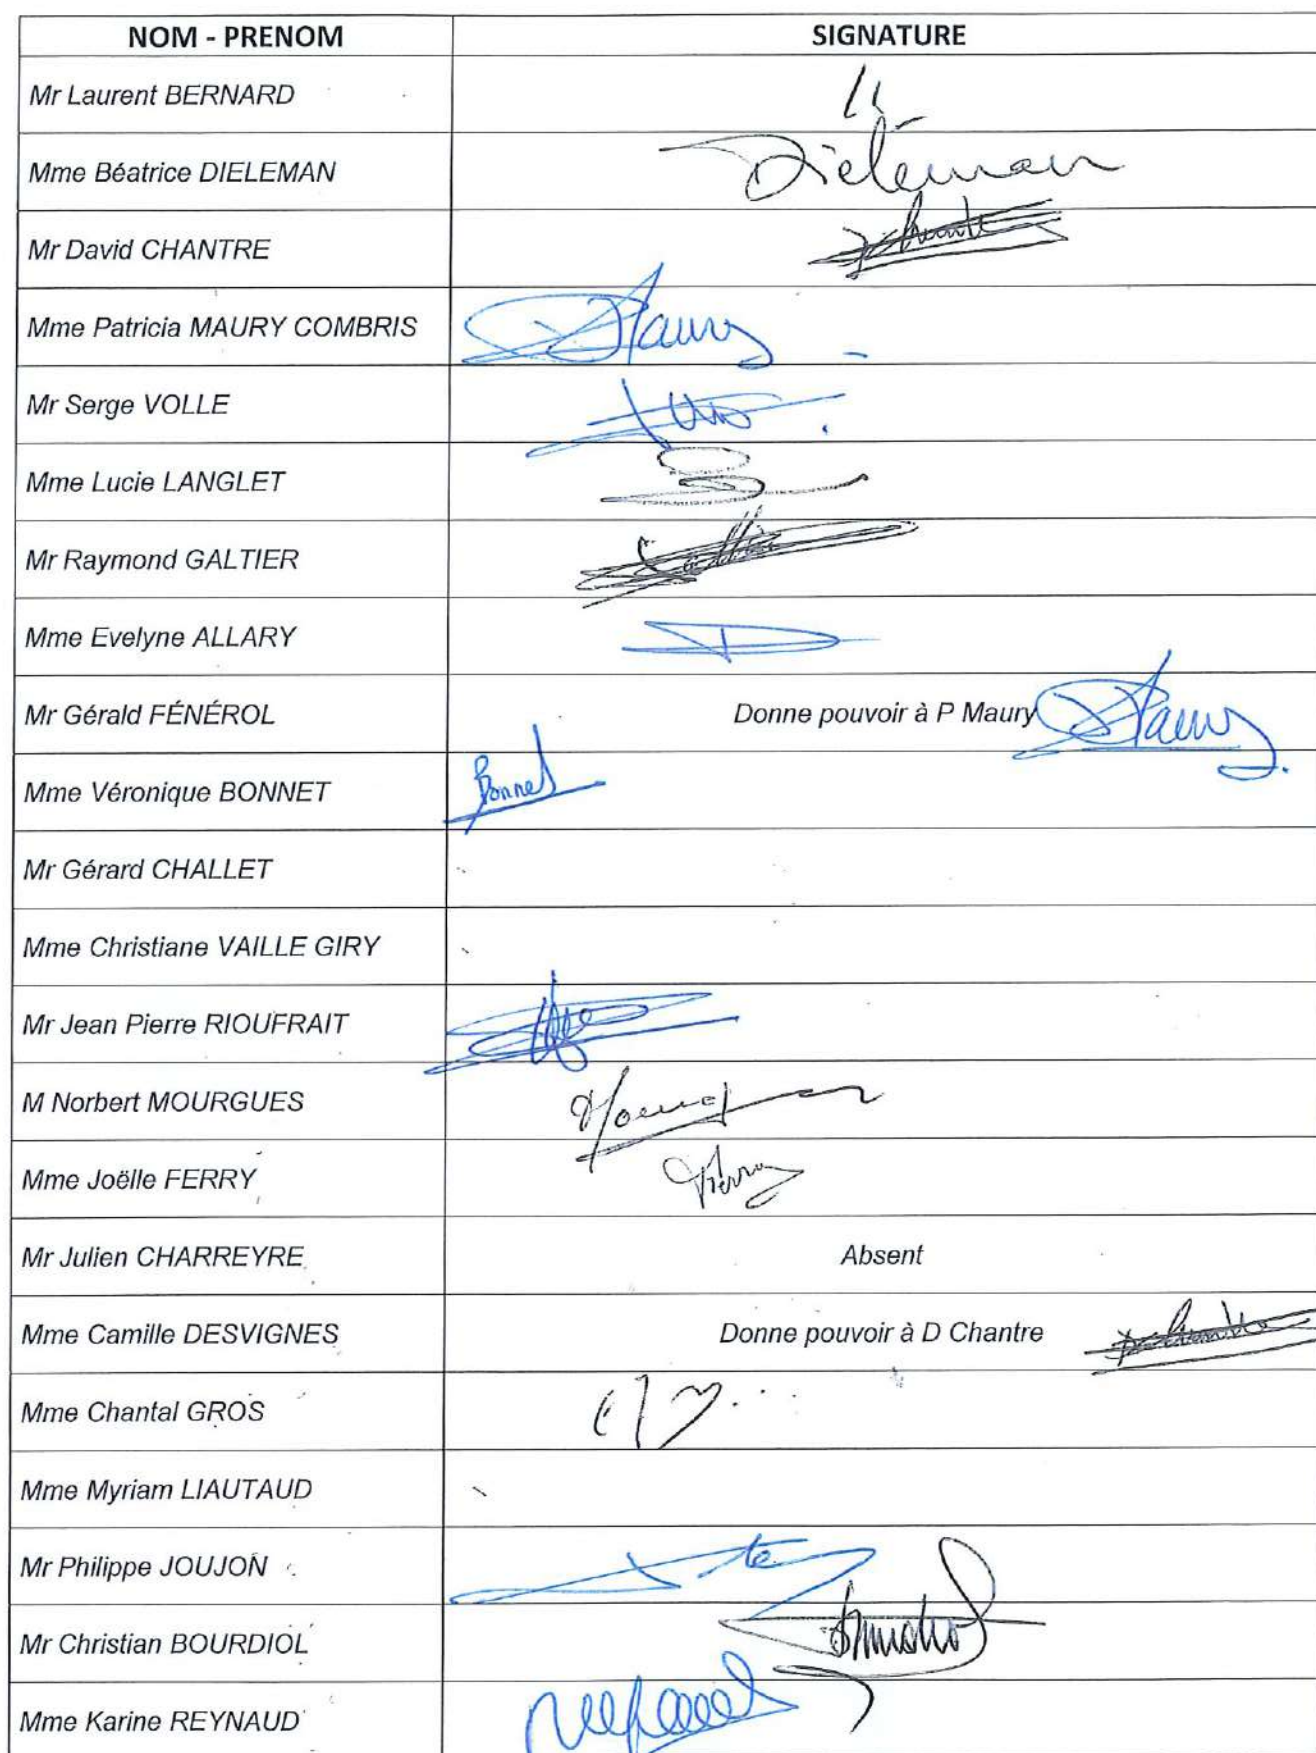 NOM - PRENOM SIGNATURE
Mr Laurent BERNARD
Mme Béatrice DIELEMAN Dieleman
Mr David CHANTRE
Mme Patricia MAURY COMBRIS Maury
Mr Serge VOLLE
Mme Lucie LANGLET
Mr Raymond GALTIER
Mme Evelyne ALLARY
Mr Gérald FÉNÉROL Donne pouvoir à P Maury Maury
Mme Véronique BONNET Bonnet
Mr Gérard CHALLET
Mme Christiane VAILLE GIRY
Mr Jean Pierre RIOUFRAIT
M Norbert MOURGUES
Mme Joëlle FERRY Ferry
Mr Julien CHARREYRE Absent
Mme Camille DESVIGNES Donne pouvoir à D Chantre
Mme Chantal GROS
Mme Myriam LIAUTAUD
Mr Philippe JOUJON
Mr Christian BOURDIOL
Mme Karine REYNAUD